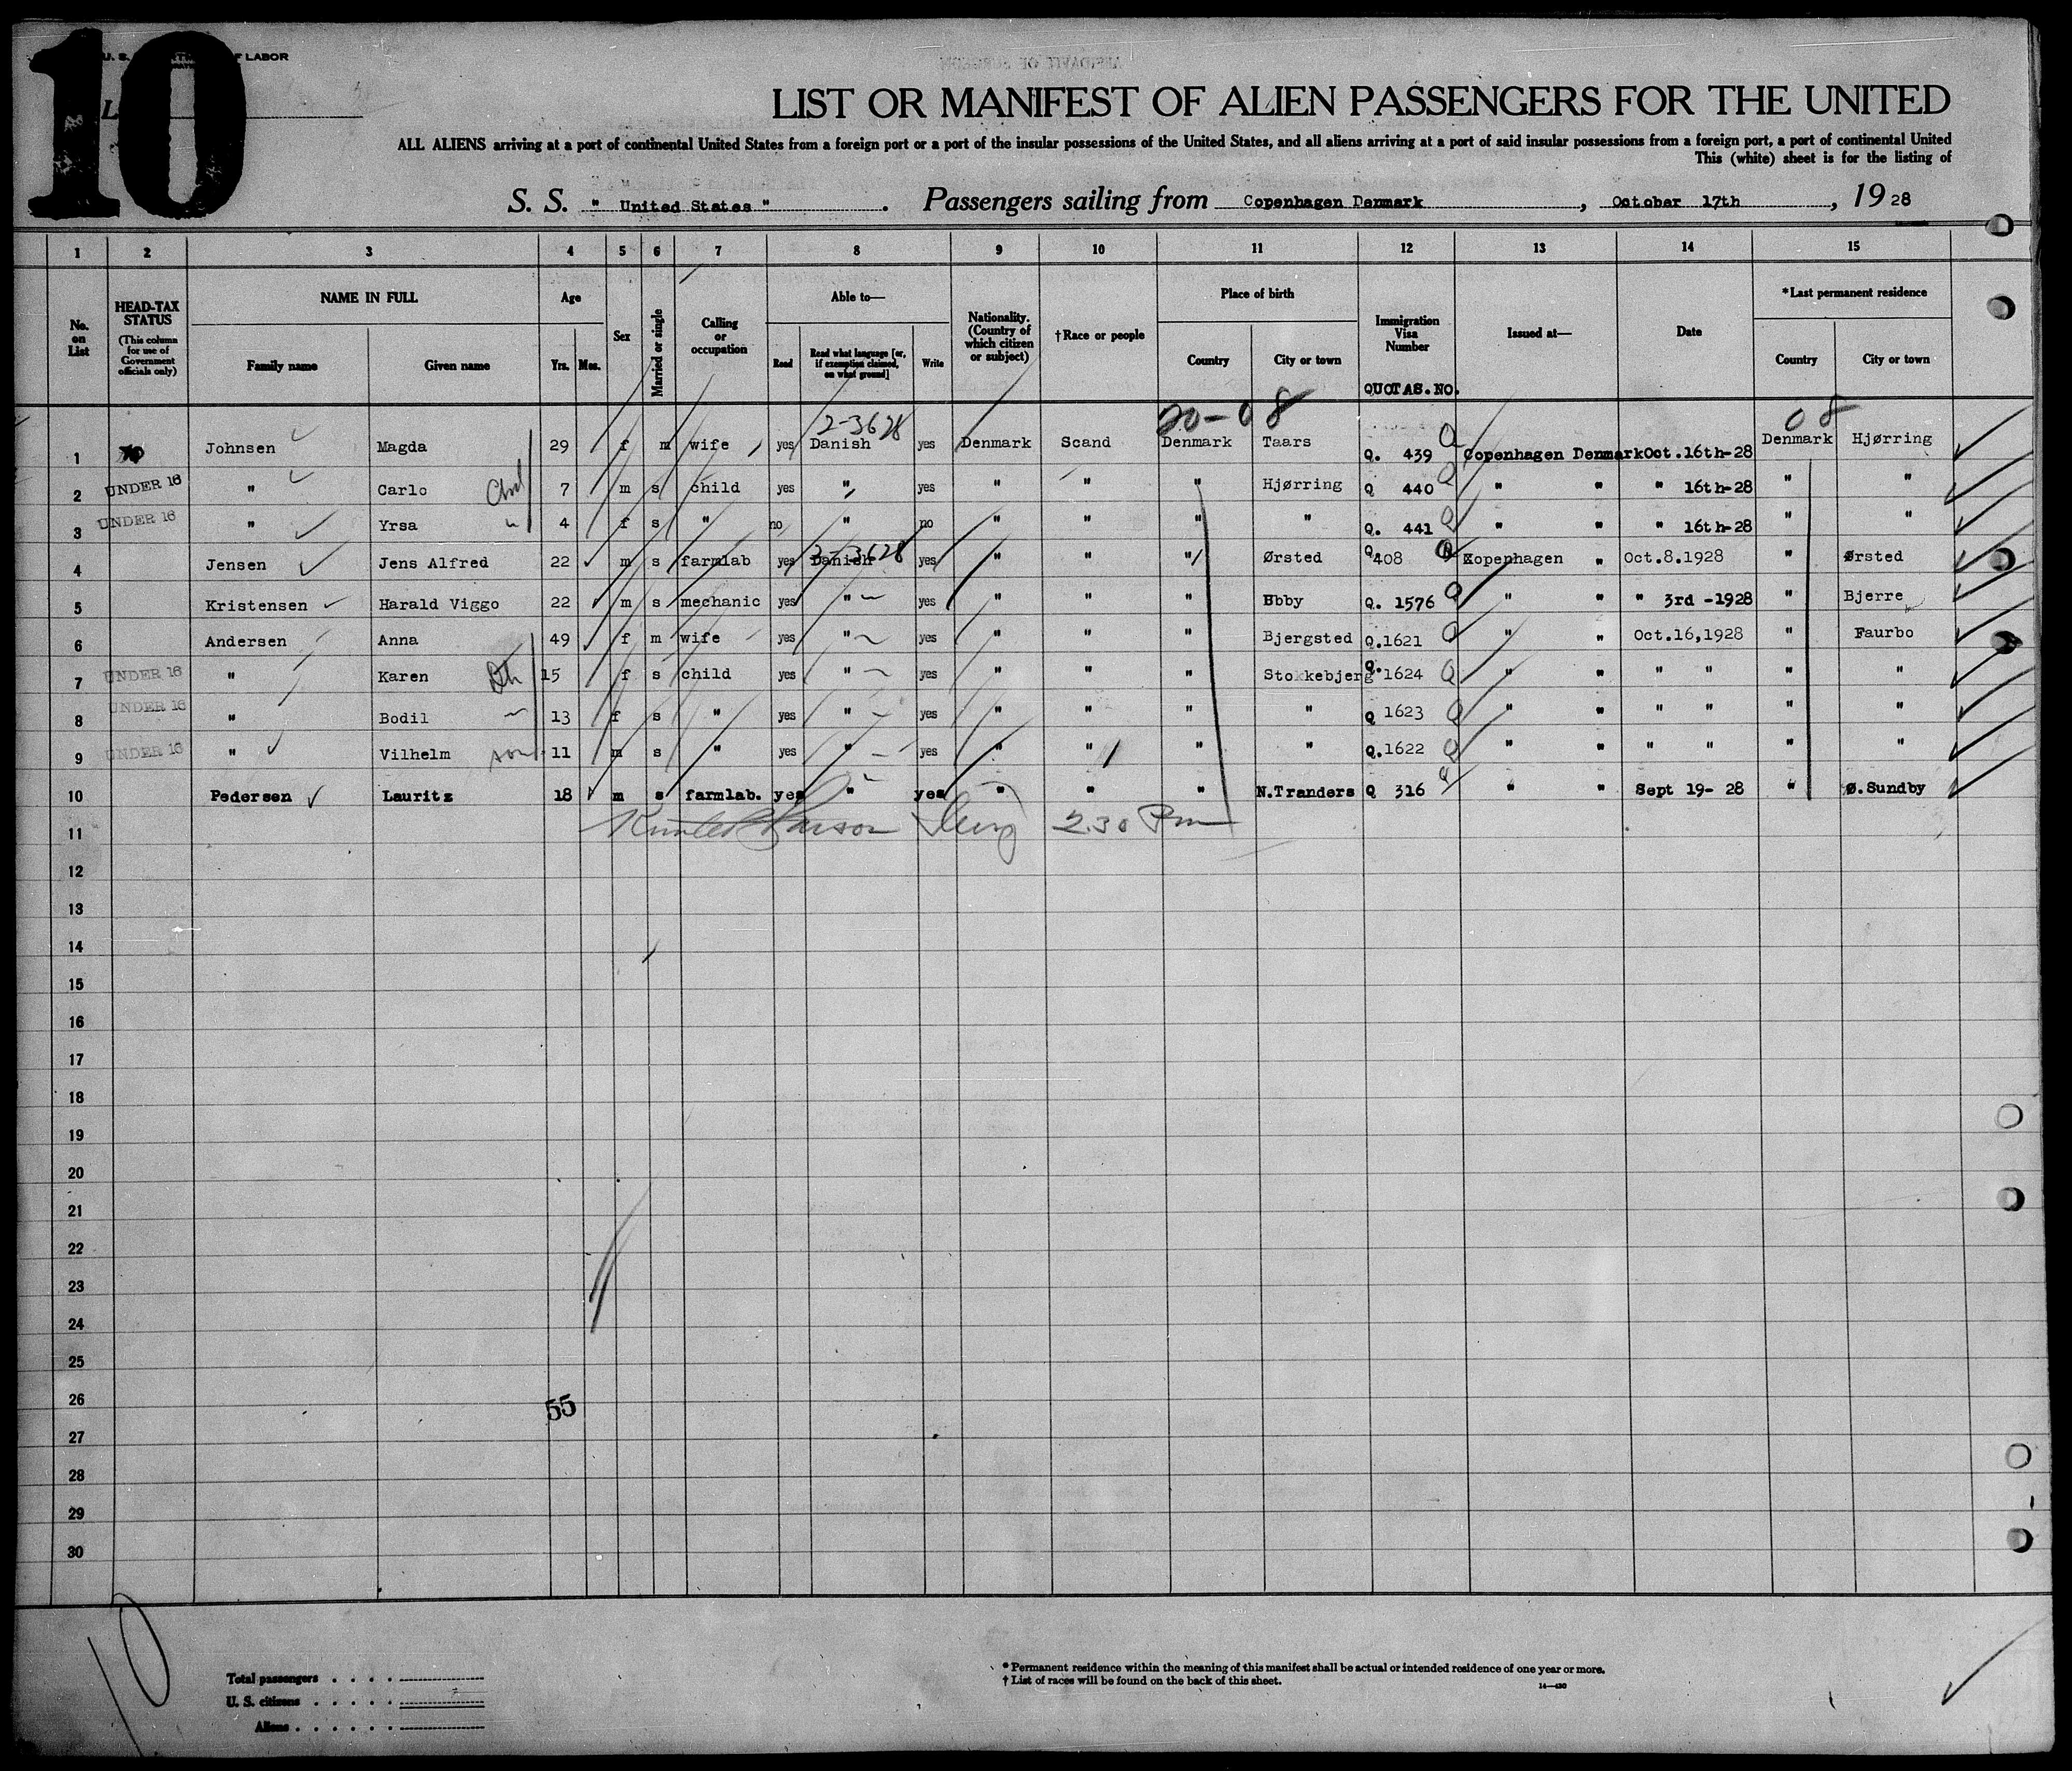 10
U. S. OF LABOR
L
LIST OR MANIFEST OF ALIEN PASSENGERS FOR THE UNITED
ALL ALIENS arriving at a port of continental United States from a foreign port or a port of the insular possessions of the United States, and all aliens arriving at a port of said insular possessions from a foreign port, a port of continental United
This (white) sheet is for the listing of
S. S. " United States ". Passengers sailing from Copenhagen Denmark, October 17th, 1928
1 2 3 4 5 6 7 8 9 10 11 12 13 14 15
No. on List
HEAD-TAX STATUS (This column for use of Government officials only)
NAME IN FULL
Family name Given name
Age
Yrs. Mos.
Sex
Married or single
Calling or occupation
Able to—
Read Read what language [or, if exemption claimed, on what ground] Write
Nationality. (Country of which citizen or subject)
†Race or people
Place of birth
Country City or town
Immigration Visa Number
QUOTAS.NO.
Issued at—
Date
*Last permanent residence
Country City or town
2-3628 20-08 08
1 Johnsen Magda 29 f m wife yes Danish yes Denmark Scand Denmark Taars Q. 439 Q Copenhagen Denmark Oct.16th-28 Denmark Hjørring
2 UNDER 16 " Carlo 7 m s child yes " yes " " " Hjørring Q 440 Q " " " 16th-28 " "
3 UNDER 16 " Yrsa " 4 f s " no " no " " " " Q. 441 Q " " " 16th-28 " "
2-3628
4 Jensen Jens Alfred 22 m s farmlab yes Danish yes " " " Ørsted Q 408 Kopenhagen " Oct.8.1928 " Ørsted
5 Kristensen Harald Viggo 22 m s mechanic yes " yes " " " Ebby Q. 1576 Q " " " 3rd -1928 " Bjerre
6 Andersen Anna 49 f m wife yes " yes " " " Bjergsted Q.1621 Q " " Oct.16,1928 " Faurbo
7 UNDER 16 " Karen 15 f s child yes " yes " " " Stokkebjerg Q.1624 Q " " " " " "
8 UNDER 16 " Bodil 13 f s " yes " yes " " " " Q 1623 Q " " " " " "
9 UNDER 16 " Vilhelm son 11 m s " yes " yes " " " " Q.1622 Q " " " " " "
10 Pedersen Lauritz 18 m s farmlab. yes " yes " " " N.Tranders Q 316 Q " " Sept 19- 28 " Ø.Sundby
11 2.30 Pm
12
13
14
15
16
17
18
19
20
21
22
23
24
25
26 55
27
28
29
30
10
Total passengers
U. S. citizens
Aliens
* Permanent residence within the meaning of this manifest shall be actual or intended residence of one year or more.
† List of races will be found on the back of this sheet.
14—430